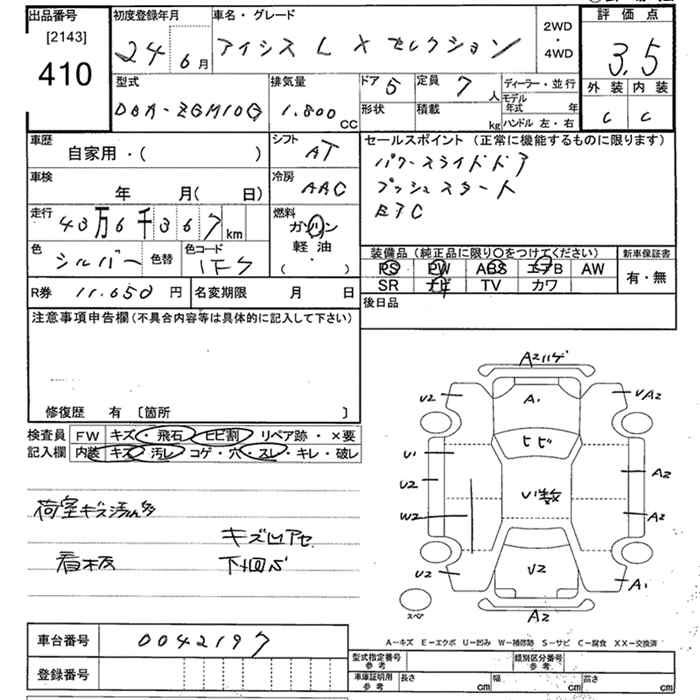 出品番号
[2143]
410
初度登録年月
24 6月
車名・グレード
アイシス L X セレクション
2WD
・
4WD
評価点
3.5
外装 内装
C C
型式
DBA-ZGM10G
排気量
1.800 CC
ドア 5
定員 7 人
形状
積載 kg
ディーラー・並行
モデル年式 年
ハンドル 左・右
車歴
自家用・( )
シフト
AT
車検
年 月( 日)
冷房
AAC
走行
43万6千367 km
燃料
ガソリン
軽油
( ・ )
色
シルバー
色替
色コード
1F7
R券 11.650 円
名変期限 月 日
セールスポイント (正常に機能するものに限ります)
パワースライドドア
プッシュスタート
ETC
装備品 (純正品に限り○をつけてください)
PS PW ABS エアB AW
SR ナビ TV カワ
新車保証書
有・無
後日品
注意事項申告欄(不具合内容等は具体的に記入して下さい)
修復歴 有 〔箇所 〕
検査員
記入欄
FW キズ・飛石 ヒビ割 リペア跡・×要
内装 キズ 汚レ コゲ・穴・スレ・キレ・破レ
荷室キズ汚れ
キズ凹アセ
看板
下回サビ
A2ハゲ
U2
A1
UA2
ヒビ
U1
U2
U数
A2
W2
A2
U2
U2
A1
スペア
A2
A−キズ E−エクボ U−凹み W−補修跡 S−サビ C−腐食 XX−交換済
車台番号 0042197
登録番号
型式指定番号
参考
類別区分番号
参考
車庫証明用
参考
長さ cm
幅 cm
高さ cm